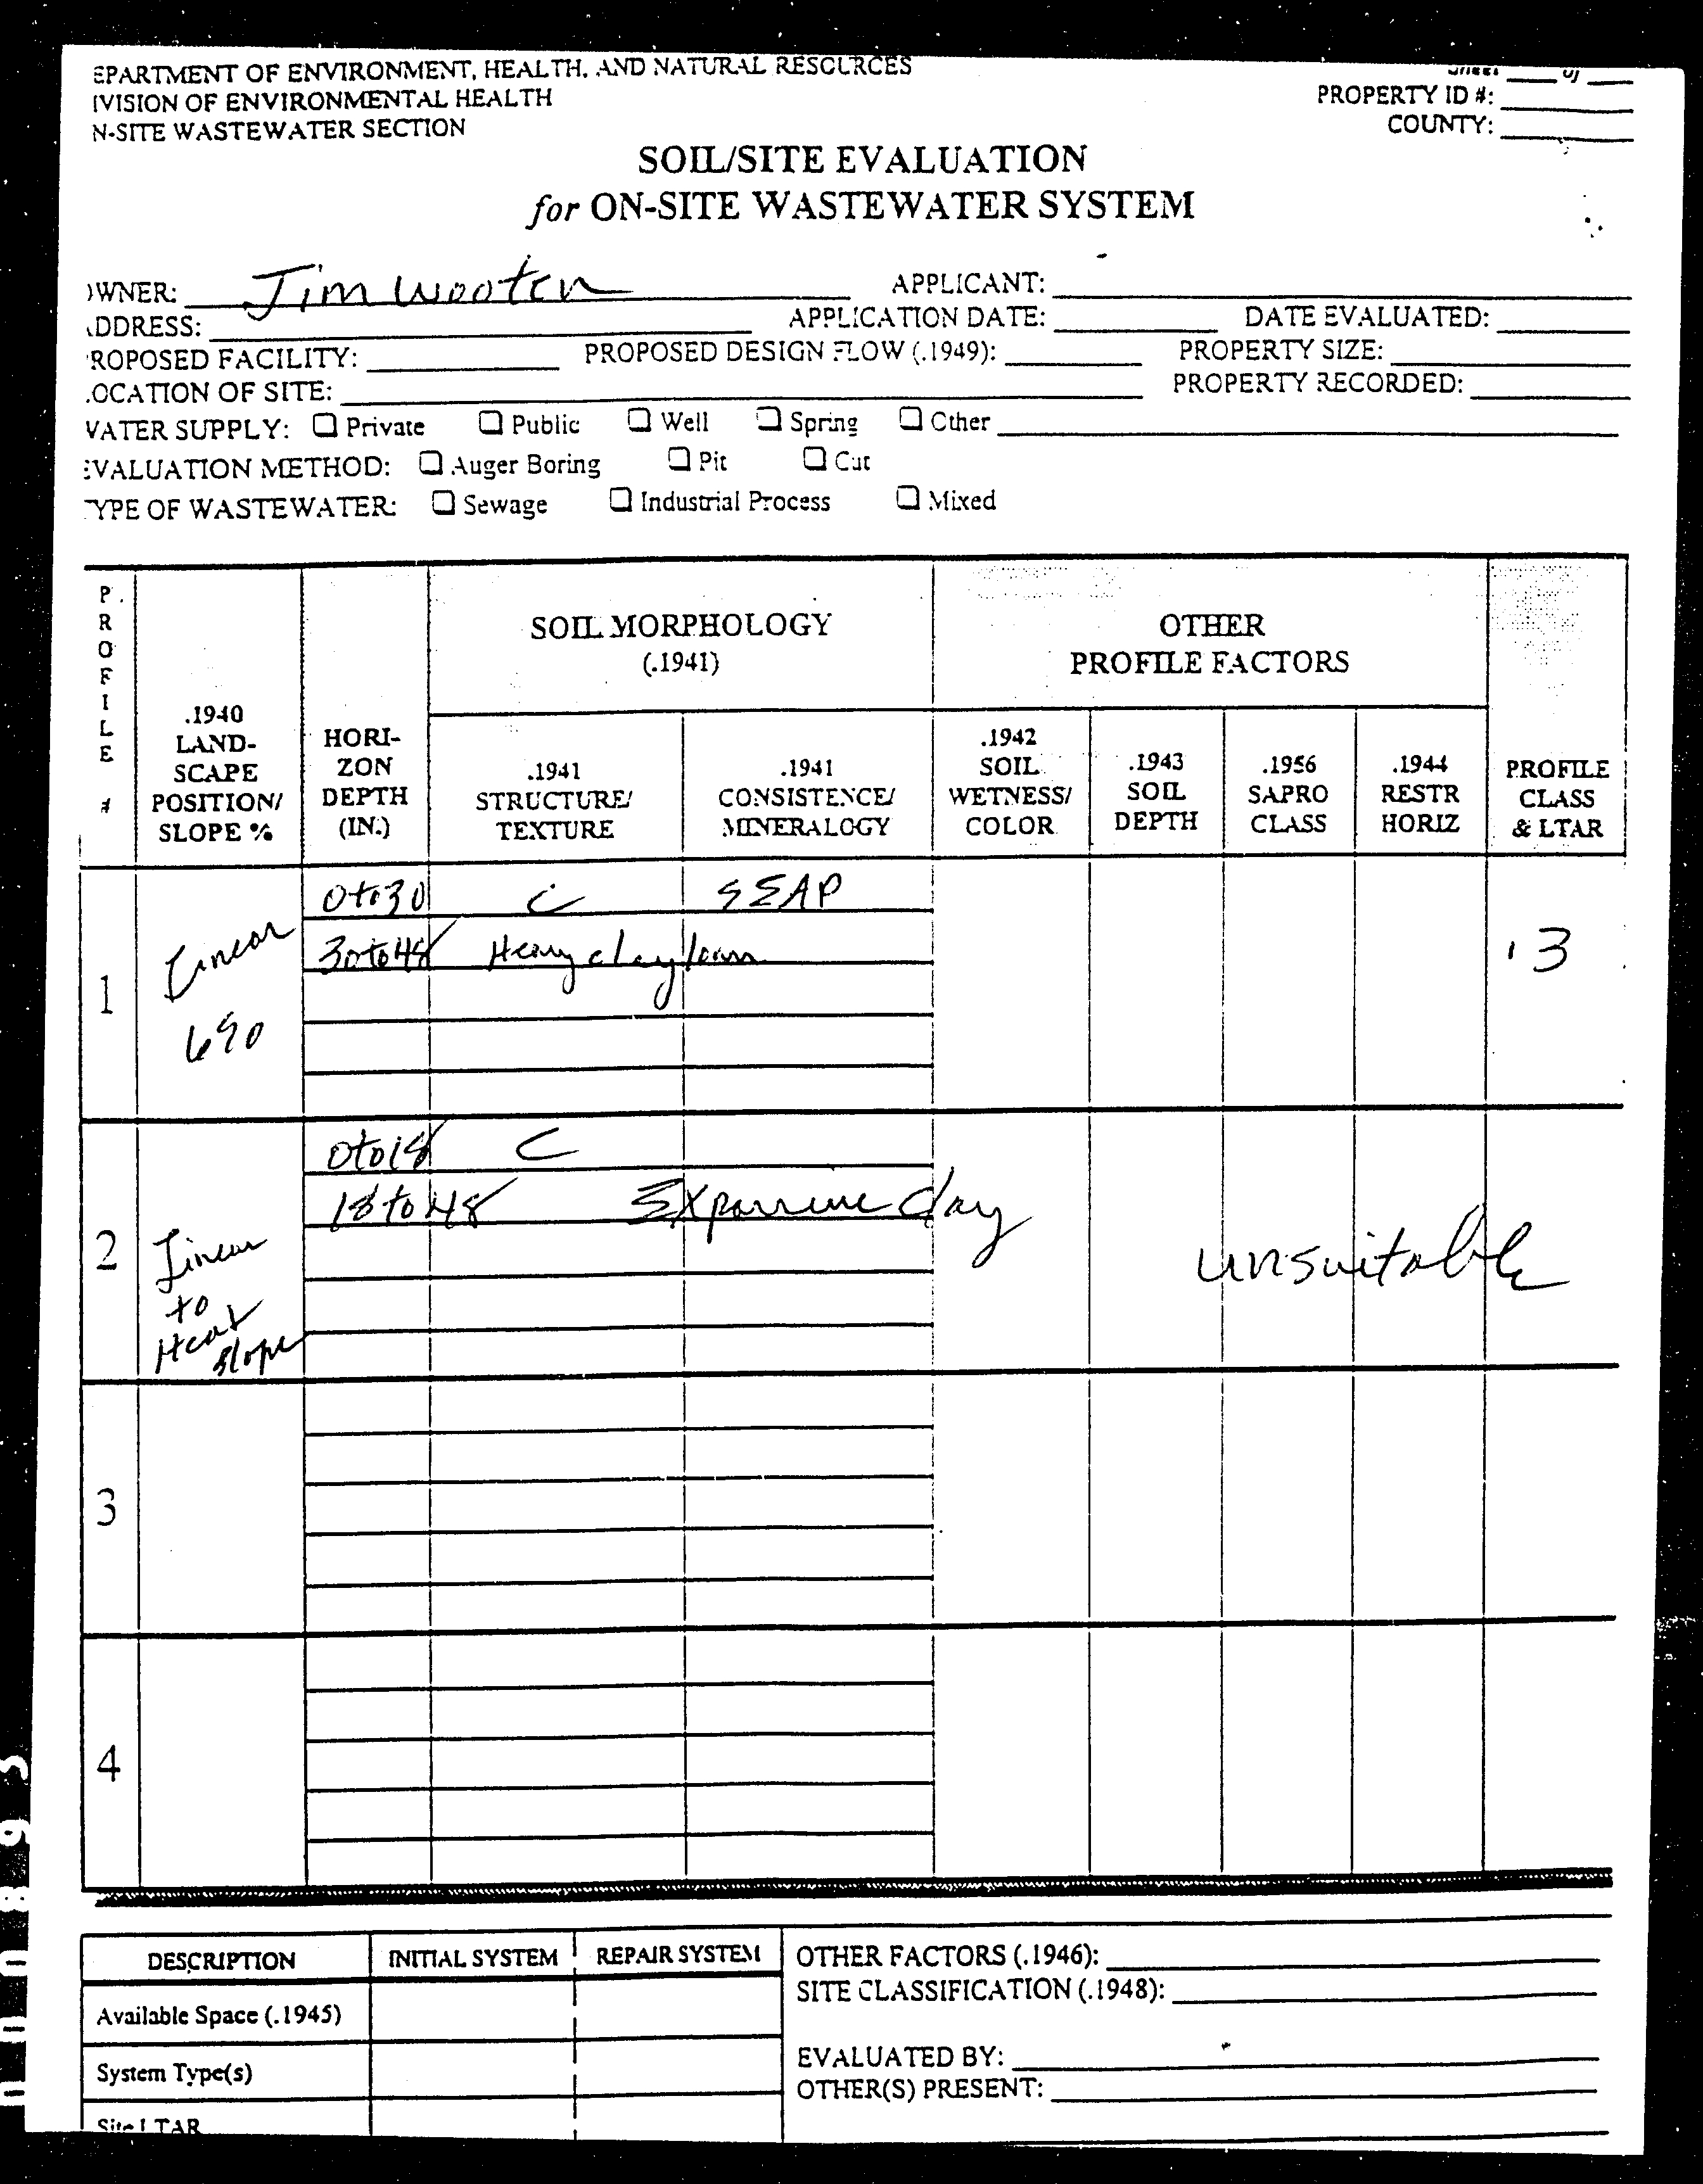 EPARTMENT OF ENVIRONMENT, HEALTH, AND NATURAL RESOURCES
IVISION OF ENVIRONMENTAL HEALTH
N-SITE WASTEWATER SECTION
Sheet ____ of ____
PROPERTY ID #:
COUNTY:
SOIL/SITE EVALUATION
for ON-SITE WASTEWATER SYSTEM
OWNER: Jim Wooten APPLICANT:
ADDRESS: APPLICATION DATE: DATE EVALUATED:
PROPOSED FACILITY: PROPOSED DESIGN FLOW (.1949): PROPERTY SIZE:
LOCATION OF SITE: PROPERTY RECORDED:
WATER SUPPLY: ☐ Private ☐ Public ☐ Well ☐ Spring ☐ Other
EVALUATION METHOD: ☐ Auger Boring ☐ Pit ☐ Cut
TYPE OF WASTEWATER: ☐ Sewage ☐ Industrial Process ☐ Mixed
PROFILE #
.1940
LAND-
SCAPE
POSITION/
SLOPE %
HORI-
ZON
DEPTH
(IN.)
SOIL MORPHOLOGY
(.1941)
.1941
STRUCTURE/
TEXTURE
.1941
CONSISTENCE/
MINERALOGY
OTHER
PROFILE FACTORS
.1942
SOIL
WETNESS/
COLOR
.1943
SOIL
DEPTH
.1956
SAPRO
CLASS
.1944
RESTR
HORIZ
PROFILE
CLASS
& LTAR
1
Linear
6%
0 to 30 C SEAP
30 to 48 Heavy clay loam
.3
2
Linear
to
Head
slope
0 to 18 C
18 to 48 Expansive clay
unsuitable
3
4
DESCRIPTION INITIAL SYSTEM REPAIR SYSTEM
Available Space (.1945)
System Type(s)
Site LTAR
OTHER FACTORS (.1946):
SITE CLASSIFICATION (.1948):
EVALUATED BY:
OTHER(S) PRESENT: